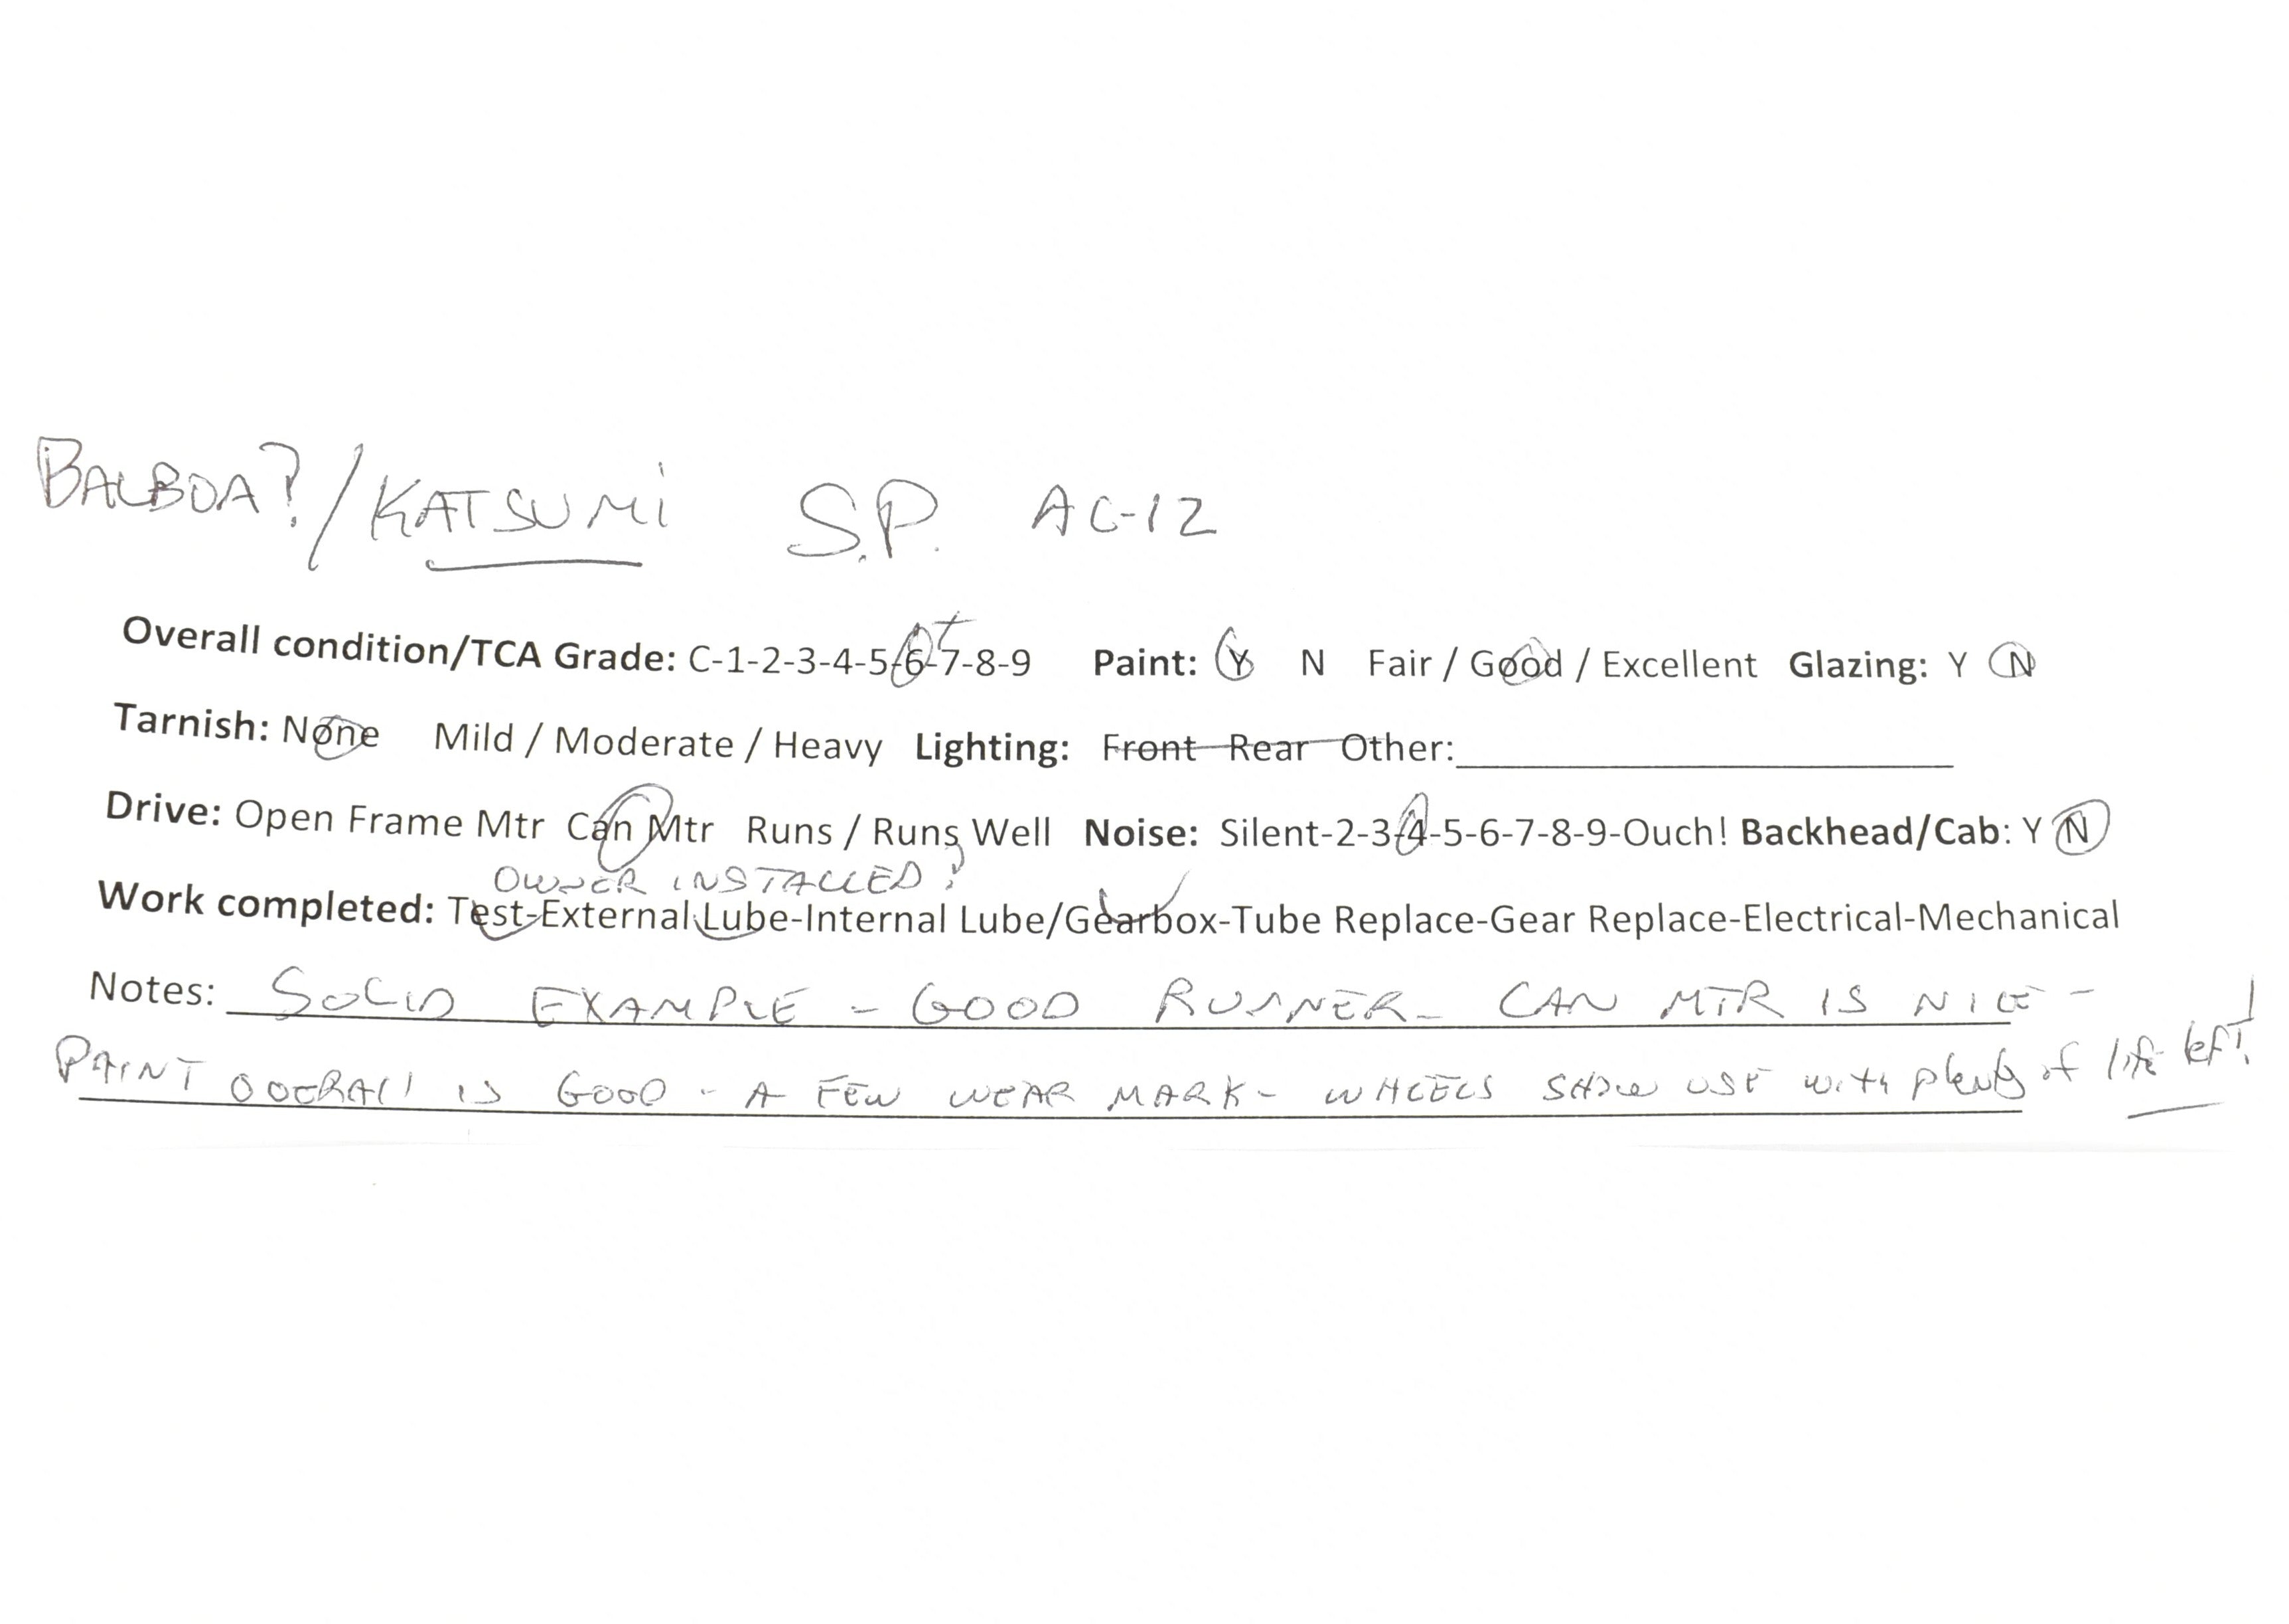 BALBOA?/KATSUMI S.P. AC-12
Overall condition/TCA Grade: C-1-2-3-4-5-6-7-8-9 + Paint: Y N Fair / Good / Excellent Glazing: Y N
Tarnish: None Mild / Moderate / Heavy Lighting: Front Rear Other:
Drive: Open Frame Mtr Can Mtr Runs / Runs Well Noise: Silent-2-3-4-5-6-7-8-9-Ouch! Backhead/Cab: Y N
OWNER INSTALLED?
Work completed: Test-External Lube-Internal Lube/Gearbox-Tube Replace-Gear Replace-Electrical-Mechanical
Notes: SOLID EXAMPLE - GOOD RUNNER - CAN MTR IS NICE -
PAINT OVERALL IS GOOD - A FEW WEAR MARK - WHEELS SHOW USE with plenty of life left!